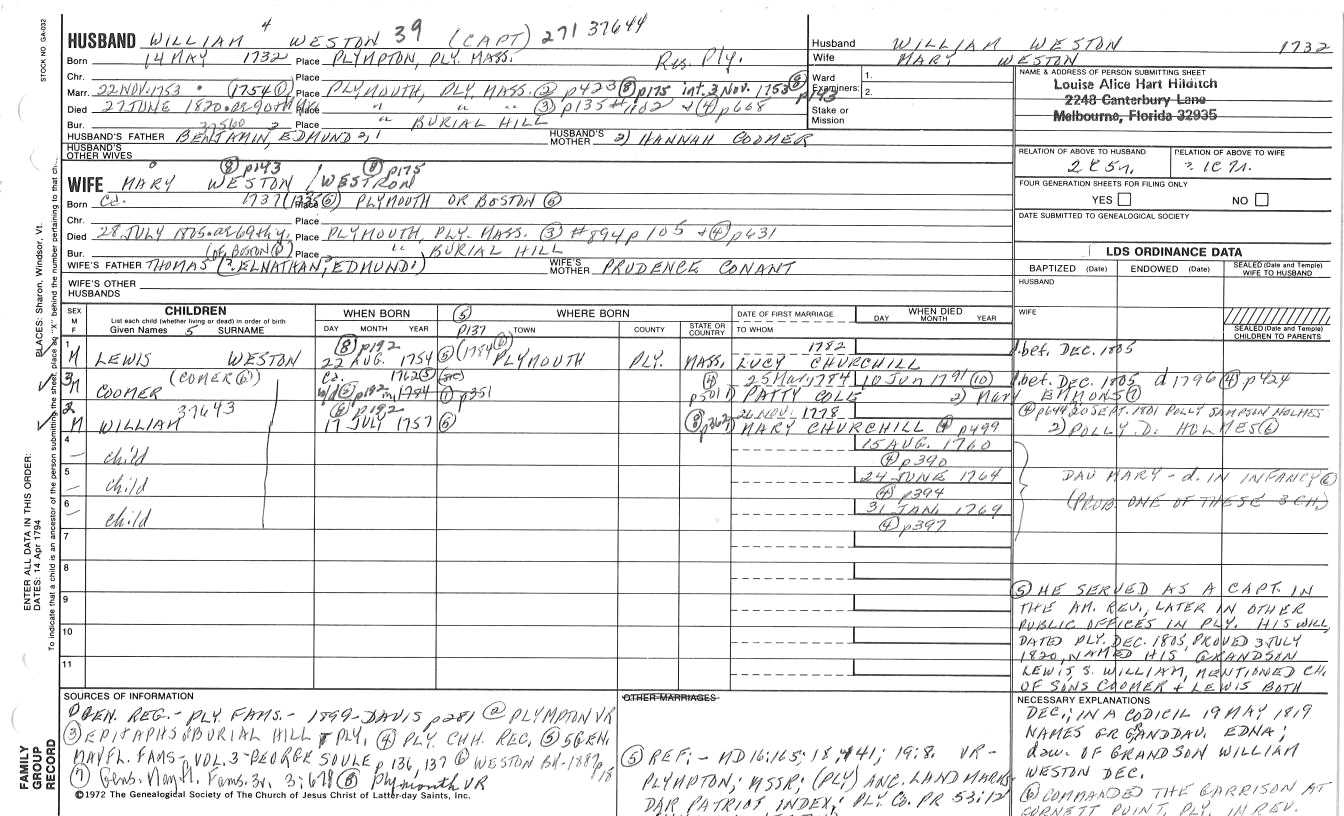 STOCK NO. GA-032
HUSBAND WILLIAM 4 WESTON 39 (CAPT) 271 37644
Born 14 MAY 1732 Place PLYMPTON, PLY. MASS. Res. Ply.
Chr. Place
Marr. 22 NOV. 1753 (1754 ①) Place PLYMOUTH, PLY. MASS. ② p423 ⑧ p175 int. 3 Nov. 1753 ⑧ p143
Died 27 JUNE 1820 Place " " " ③ p135 #1102 & ④ p668
Bur. Place " BURIAL HILL
HUSBAND'S FATHER BENJAMIN, EDMUND 2, 1 HUSBAND'S MOTHER 2) HANNAH COOMER
HUSBAND'S OTHER WIVES
⑧ p143 ⑧ p175
WIFE MARY WESTON / WESTRON
Born Ca. 1737 Place PLYMOUTH OR BOSTON ⑥
Chr. Place
Died 28 JULY 1805 Place PLYMOUTH, PLY. MASS. ③ #894 p105 & ④ p631
Bur. (OF BOSTON ⑧) Place " BURIAL HILL
WIFE'S FATHER THOMAS (?. ELNATHAN, EDMUND 1) WIFE'S MOTHER PRUDENCE CONANT
WIFE'S OTHER HUSBANDS
Husband WILLIAM WESTON 1732
Wife MARY WESTON
Ward 1.
Examiners: 2.
Stake or Mission
NAME & ADDRESS OF PERSON SUBMITTING SHEET
Louise Alice Hart Hilditch
2248 Canterbury Lane
Melbourne, Florida 32935
RELATION OF ABOVE TO HUSBAND RELATION OF ABOVE TO WIFE
2C5r. ?. 1C7r.
FOUR GENERATION SHEETS FOR FILING ONLY
YES NO
DATE SUBMITTED TO GENEALOGICAL SOCIETY
LDS ORDINANCE DATA
BAPTIZED (Date) ENDOWED (Date) SEALED (Date and Temple) WIFE TO HUSBAND
HUSBAND
WIFE
SEALED (Date and Temple) CHILDREN TO PARENTS
SEX M F
CHILDREN
List each child (whether living or dead) in order of birth
Given Names 5 SURNAME
WHEN BORN
DAY MONTH YEAR
WHERE BORN
⑤ p137 TOWN COUNTY STATE OR COUNTRY
DATE OF FIRST MARRIAGE
TO WHOM
WHEN DIED
DAY MONTH YEAR
1 M LEWIS WESTON ⑧ p192 22 AUG. 1754 ⑤ (1784 ⑥) PLYMOUTH PLY. MASS. 1782 LUCY CHURCHILL d. bet. DEC. 1805
3 M COOMER (COMER ⑥) Ca 1762 ⑤ (sic) 1784 ① p351 ④ p501 25 Mar. 1784 PATTY COLE 10 Jun 1791 ⑩ d. bet. DEC. 1805 d 1796 ④ p424
2) Mary EMMONS ①
2 M WILLIAM 37643 ⑧ p192 17 JULY 1757 ⑥ ⑧ p362 26 NOV. 1778 MARY CHURCHILL ④ p499 ④ p644 20 SEPT. 1801 POLLY SAMPSON HOLMES
2) POLLY D. HOLMES ⑥
4 child 15 AUG. 1760 ④ p390
5 child 24 JUNE 1764 ④ p394
DAU MARY - d. IN INFANCY ⑥
(PROB. ONE OF THESE 3 CH.)
6 child 31 JAN. 1769 ④ p397
7
8
9
10
11
⑤ HE SERVED AS A CAPT. IN
THE AM. REV., LATER IN OTHER
PUBLIC OFFICES IN PLY. HIS WILL,
DATED PLY. DEC. 1805, PROVED 3 JULY
1820, NAMED HIS GRANDSON
LEWIS, S. WILLIAM, MENTIONED CH.
OF SONS COOMER & LEWIS BOTH
NECESSARY EXPLANATIONS
DEC.; IN A CODICIL 19 MAY 1819
NAMES GR GRANDDAU. EDNA;
dau. OF GRANDSON WILLIAM
WESTON DEC.
⑥ COMMANDED THE GARRISON AT
GURNETT POINT, PLY. IN REV.
SOURCES OF INFORMATION
① GEN. REG. - PLY. FAMS. - 1899 - DAVIS p281 ② PLYMPTON VR
③ EPITAPHS BURIAL HILL PLY, ④ PLY. CHH. REC. ⑤ 5 GEN.
MAYFL. FAMS - VOL. 3 - GEORGE SOULE p 136, 137 ⑥ WESTON BK - 1887 p18
⑦ Gens. Mayfl. Fams. 3v. 3:678 ⑧ Plymouth VR
©1972 The Genealogical Society of The Church of Jesus Christ of Latter-day Saints, Inc.
OTHER MARRIAGES
⑤ REF: - MD 16:165; 18:141; 19:8. VR -
PLYMPTON; MSSR; (PLY) ANC. LANDMARKS
DAR PATRIOT INDEX; PLY. CO. PR 53:12
PLACES: Sharon, Windsor, Vt.
ENTER ALL DATA IN THIS ORDER:
DATES: 14 Apr 1794
To indicate that a child is an ancestor of the person submitting the sheet, place an "X" behind the number pertaining to that ch
FAMILY GROUP RECORD